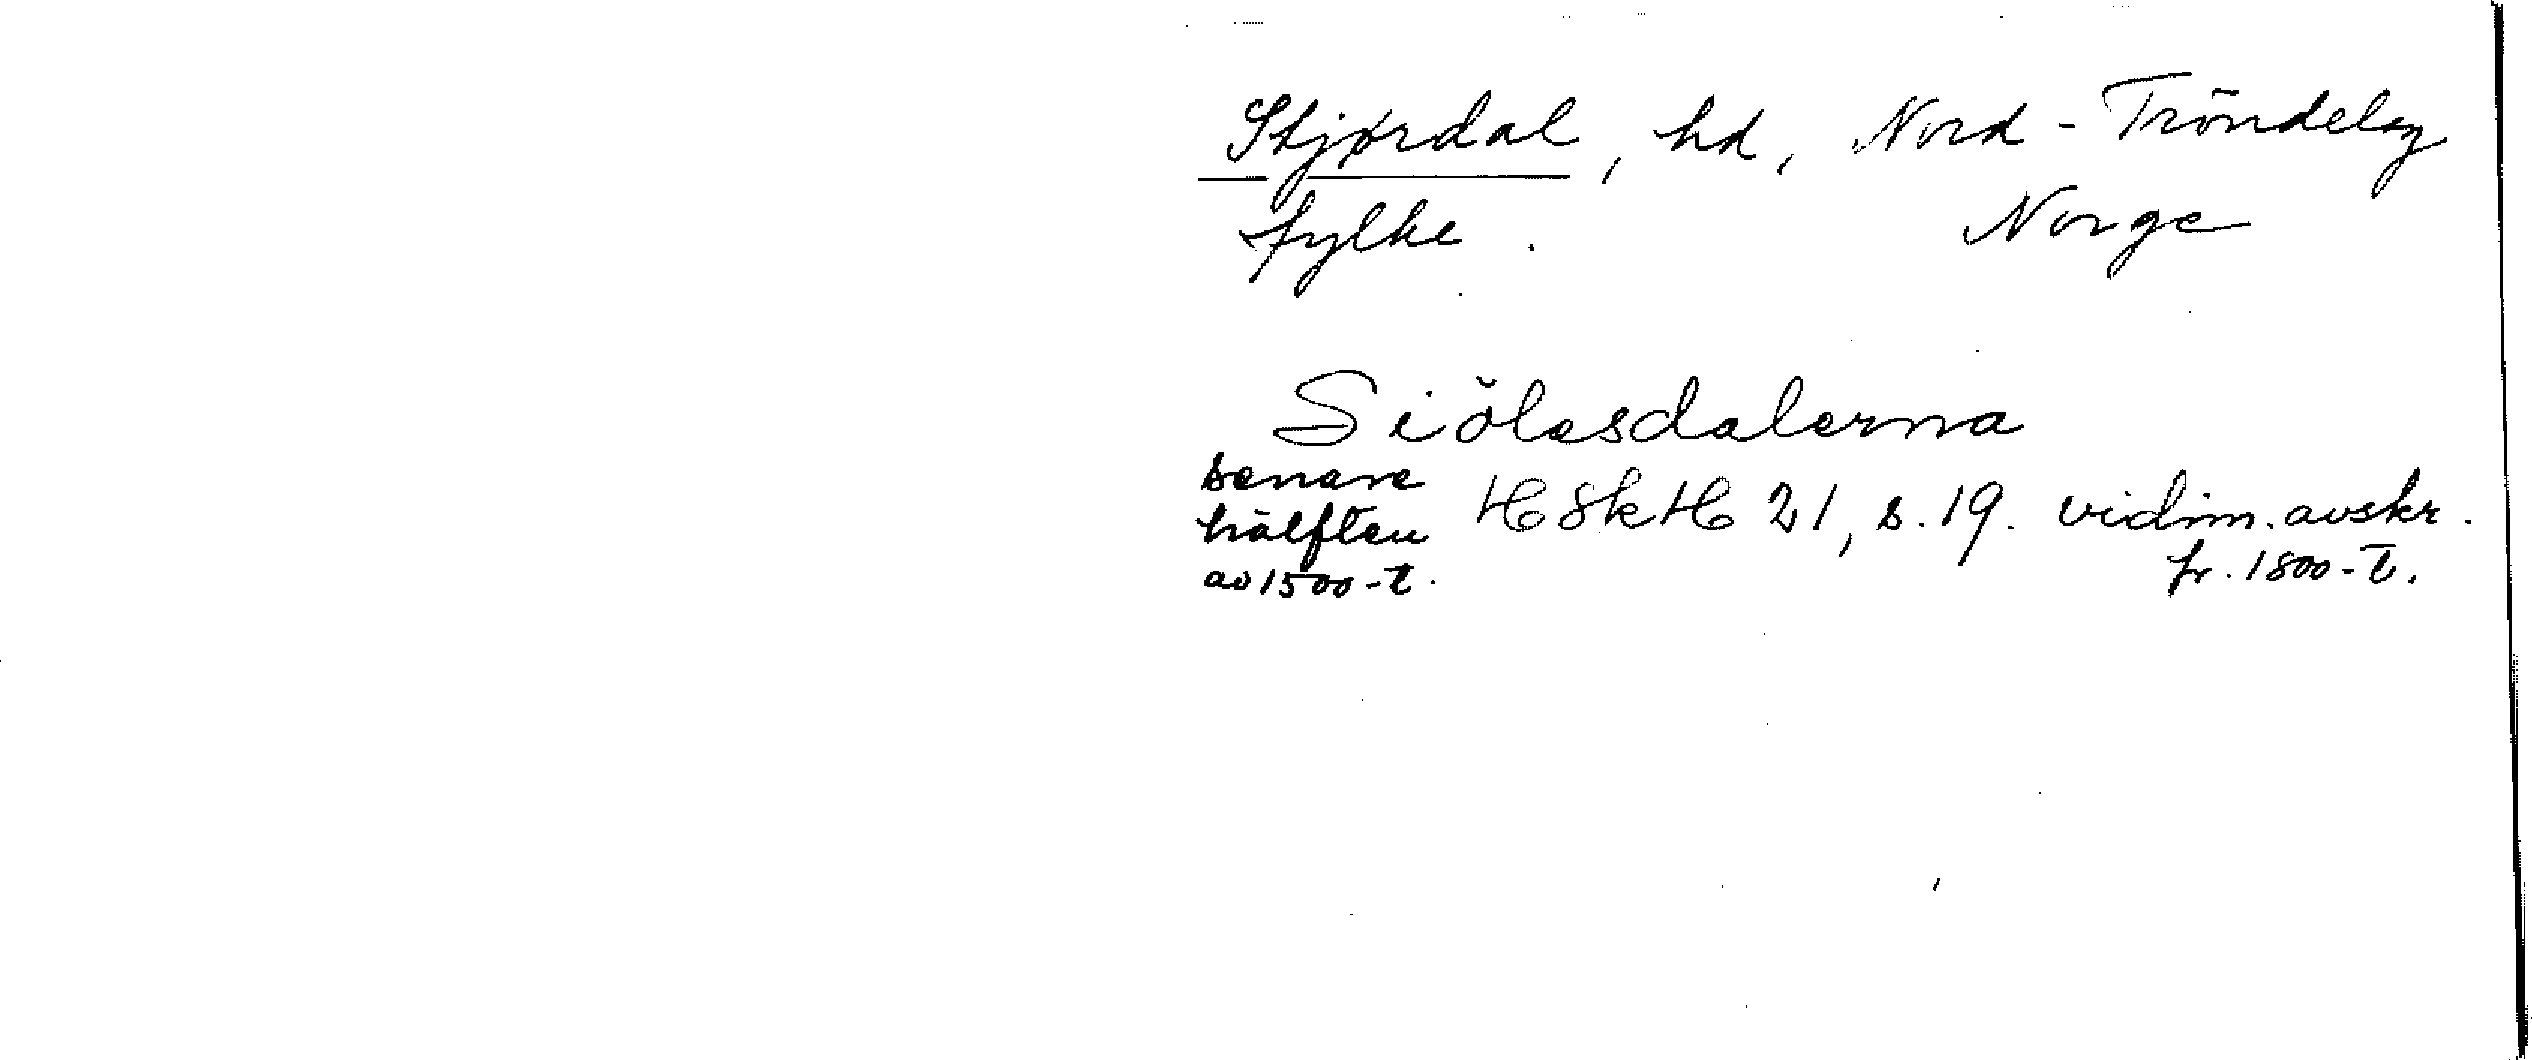 Stjørdal, hd, Nord-Tröndelag
fylke. Norge
Siölesdalerna
senare
hälften HSkH 21, s. 19. vidim. avskr.
av 1500-t. fr. 1800-t.